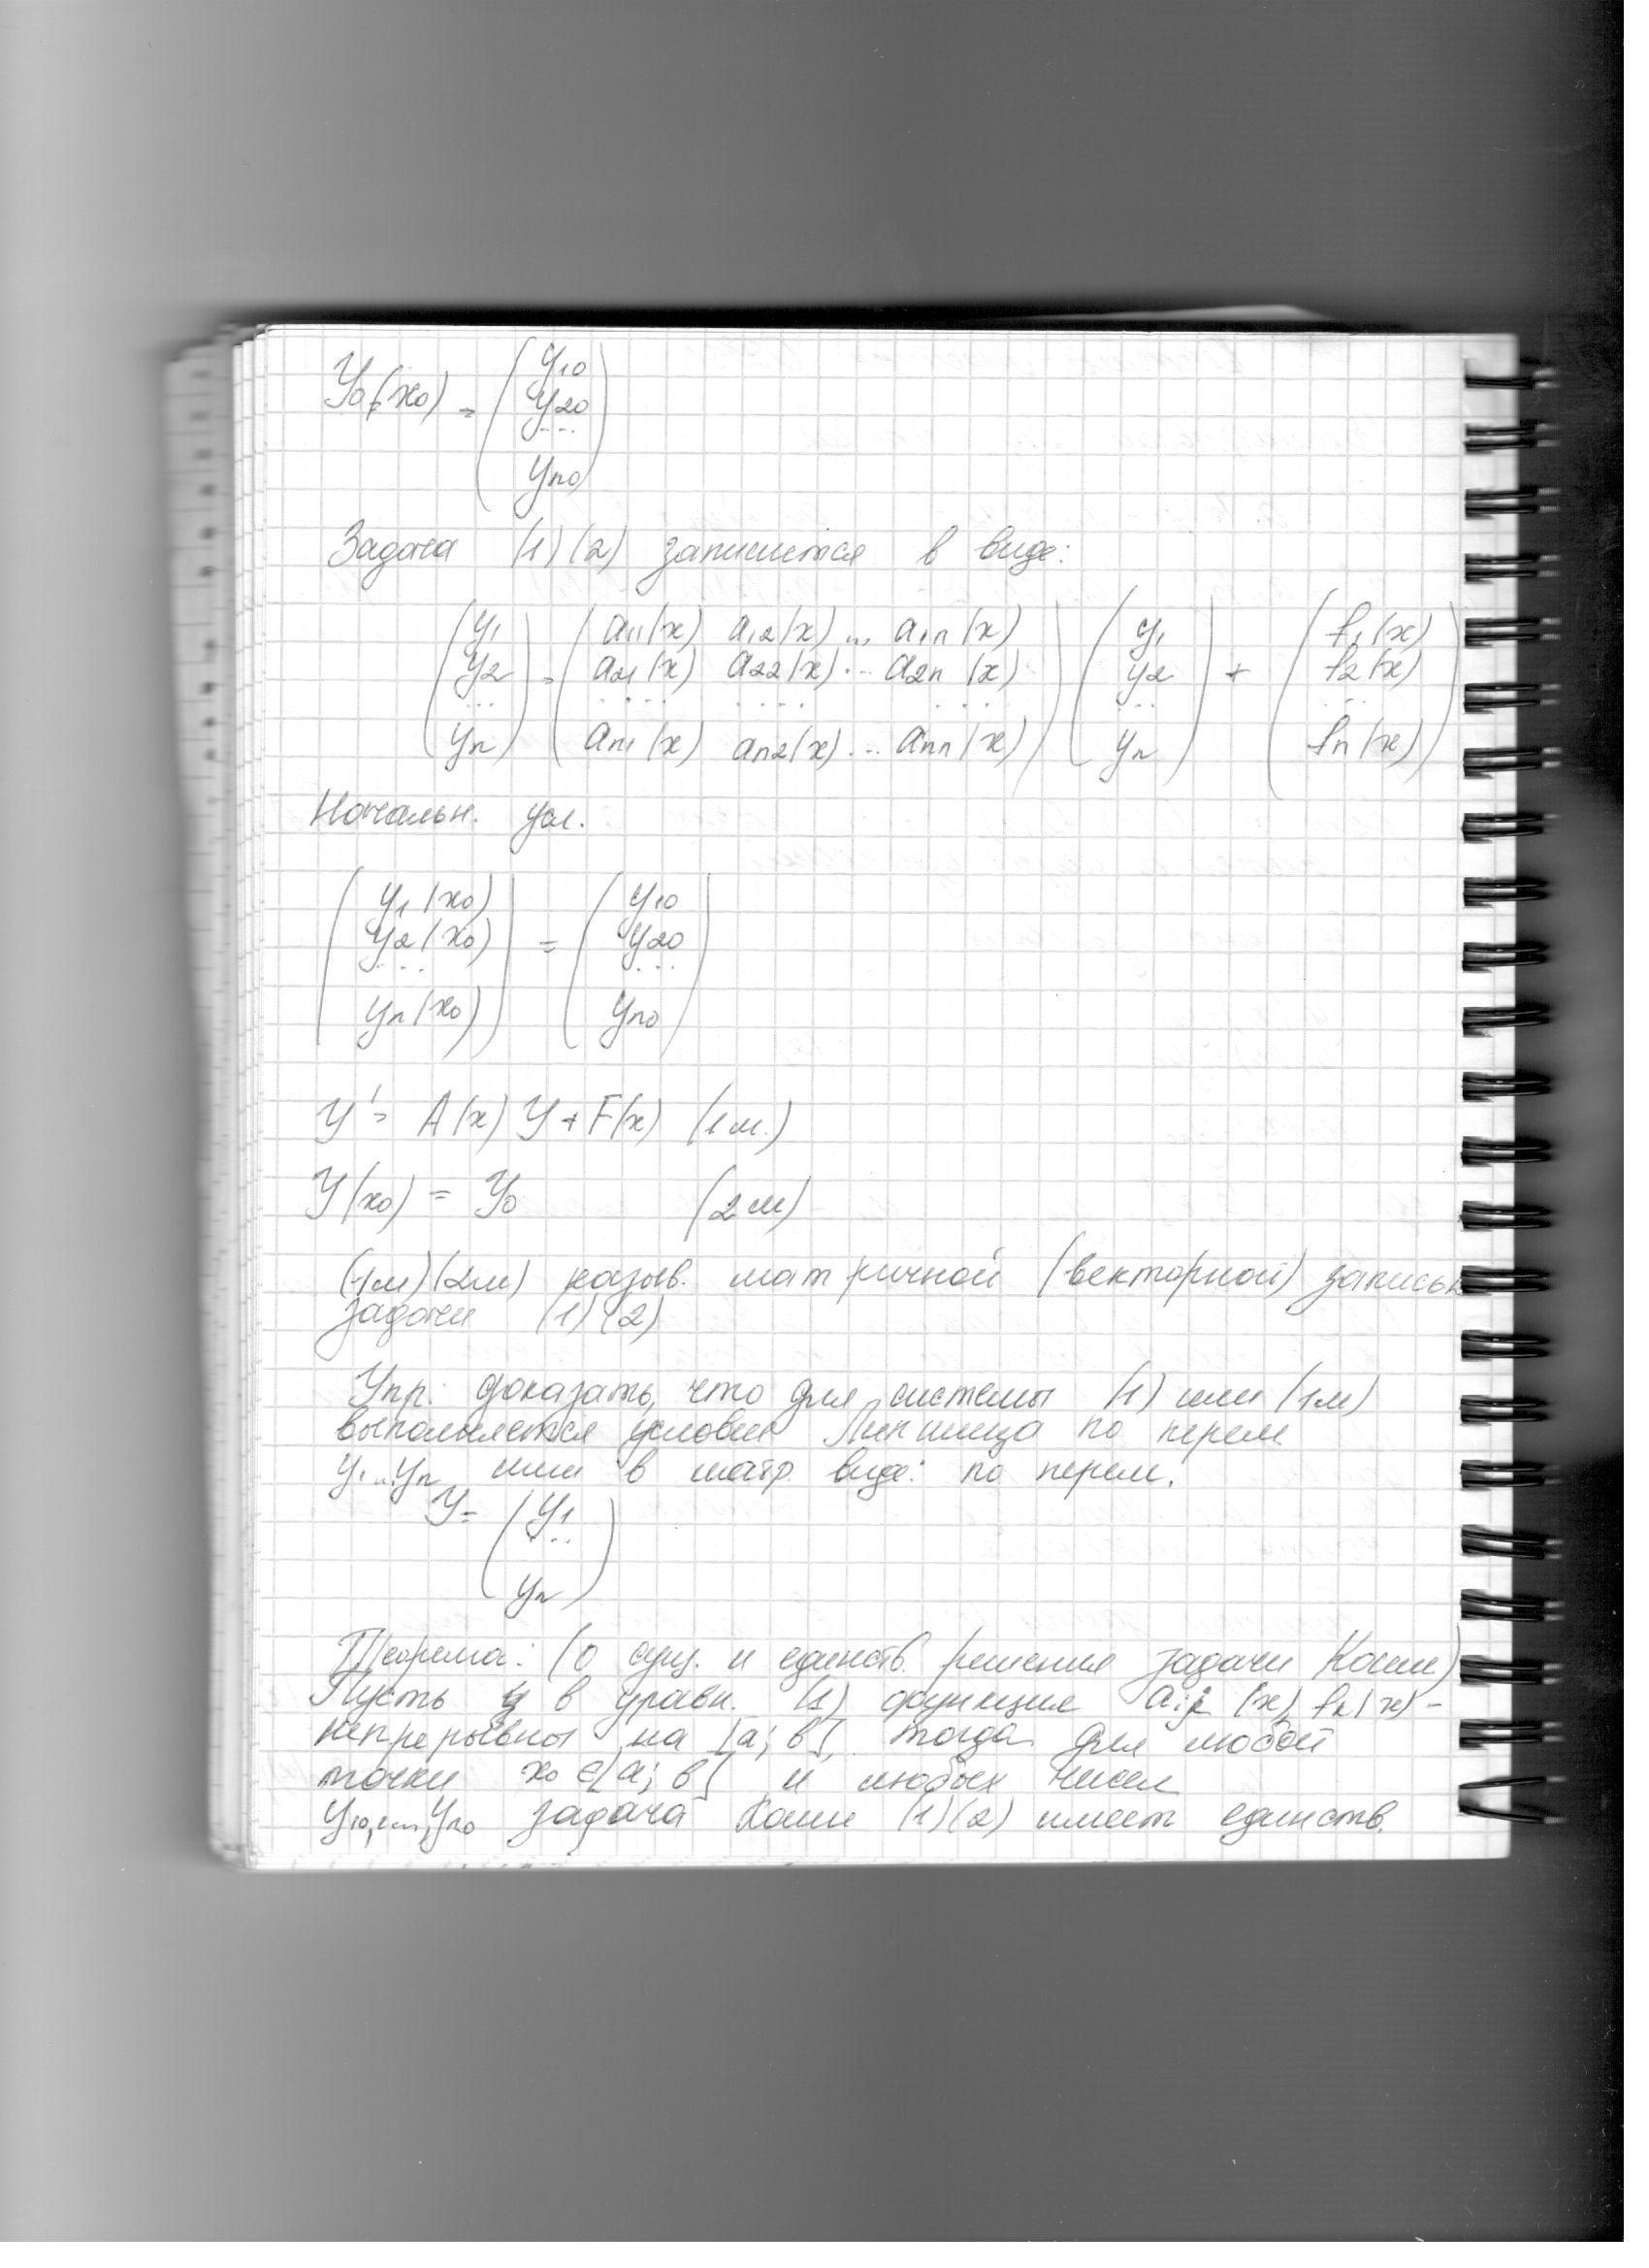 Y₀(x₀) = ( y₁₀
y₂₀
...
yₙ₀ )
Задача (1)(2) запишется в виде:
( y₁ ) = ( a₁₁(x) a₁₂(x) ... a₁ₙ(x) ) ( y₁ ) + ( f₁(x) )
( y₂ ) ( a₂₁(x) a₂₂(x) ... a₂ₙ(x) ) ( y₂ ) ( f₂(x) )
... .... .... .... ... ...
( yₙ ) ( aₙ₁(x) aₙ₂(x) ... aₙₙ(x) ) ( yₙ ) ( fₙ(x) )
Начальн. усл.
( y₁(x₀) ) = ( y₁₀ )
( y₂(x₀) ) ( y₂₀ )
... ...
( yₙ(x₀) ) ( yₙ₀ )
Y' = A(x) Y + F(x) (1м.)
Y(x₀) = Y₀ (2м)
(1м)(2м) назыв. матричной (векторной) запись
задачи (1)(2)
Упр: доказать, что для системы (1) или (1м)
выполняется условие Липшица по перем
y₁...yₙ или в матр. виде: по перем.
Y = ( y₁
...
yₙ )
Теорема: (о сущ. и единств. решения задачи Коши)
Пусть в уравн. (1) функция (x), fₖ(x) -
непрерывны на [a; b], тогда для любой
точки x₀ ∈ [a; b] и любых чисел
y₁₀,...,yₙ₀ задача Коши (1)(2) имеет единств.